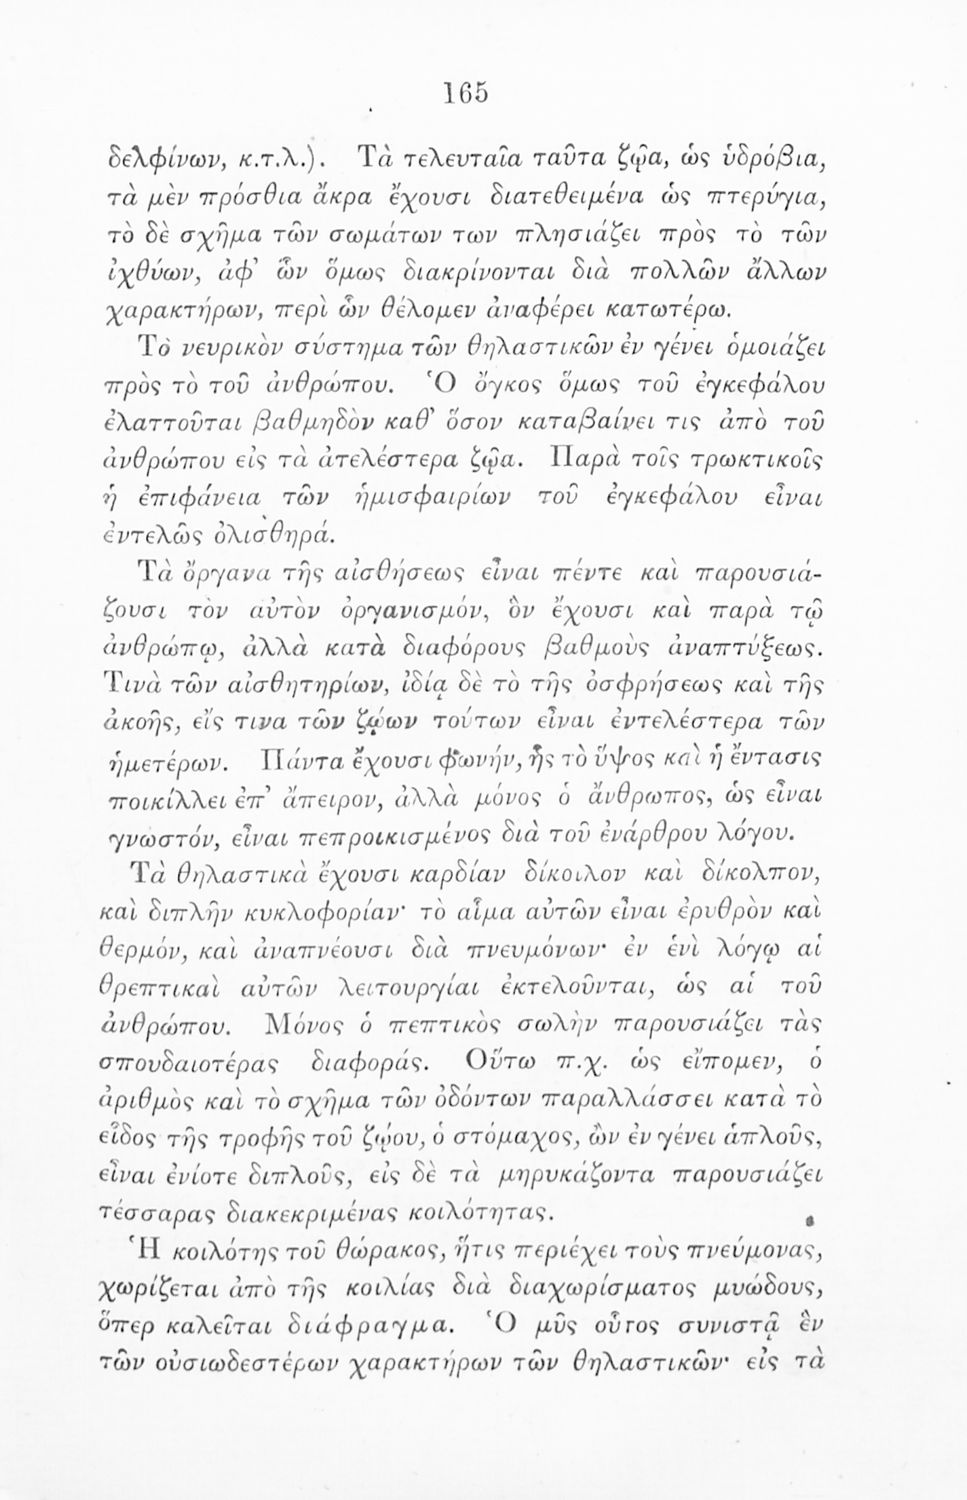 165
δελφίνων, κ.τ.λ.). Τὰ τελευταῖα ταῦτα ζῷα, ὡς ὑδρόβια,
τὰ μὲν πρόσθια ἄκρα ἔχουσι διατεθειμένα ὡς πτερύγια,
τὸ δὲ σχῆμα τῶν σωμάτων των πλησιάζει πρὸς τὸ τῶν
ἰχθύων, ἀφ' ὧν ὅμως διακρίνονται διὰ πολλῶν ἄλλων
χαρακτήρων, περὶ ὧν θέλομεν ἀναφέρει κατωτέρω.
Τὸ νευρικὸν σύστημα τῶν θηλαστικῶν ἐν γένει ὁμοιάζει
πρὸς τὸ τοῦ ἀνθρώπου. Ὁ ὄγκος ὅμως τοῦ ἐγκεφάλου
ἐλαττοῦται βαθμηδὸν καθ' ὅσον καταβαίνει τις ἀπὸ τοῦ
ἀνθρώπου εἰς τὰ ἀτελέστερα ζῷα. Παρὰ τοῖς τρωκτικοῖς
ἡ ἐπιφάνεια τῶν ἡμισφαιρίων τοῦ ἐγκεφάλου εἶναι
ἐντελῶς ὀλισθηρά.
Τὰ ὄργανα τῆς αἰσθήσεως εἶναι πέντε καὶ παρουσιά-
ζουσι τὸν αὐτὸν ὀργανισμόν, ὃν ἔχουσι καὶ παρὰ τῷ
ἀνθρώπῳ, ἀλλὰ κατὰ διαφόρους βαθμοὺς ἀναπτύξεως.
Τινὰ τῶν αἰσθητηρίων, ἰδίᾳ δὲ τὸ τῆς ὀσφρήσεως καὶ τῆς
ἀκοῆς, εἴς τινα τῶν ζῴων τούτων εἶναι ἐντελέστερα τῶν
ἡμετέρων. Πάντα ἔχουσι φωνήν, ἧς τὸ ὕψος καὶ ἡ ἔντασις
ποικίλλει ἐπ' ἄπειρον, ἀλλὰ μόνος ὁ ἄνθρωπος, ὡς εἶναι
γνωστόν, εἶναι πεπροικισμένος διὰ τοῦ ἐνάρθρου λόγου.
Τὰ θηλαστικὰ ἔχουσι καρδίαν δίκοιλον καὶ δίκολπον,
καὶ διπλῆν κυκλοφορίαν· τὸ αἷμα αὐτῶν εἶναι ἐρυθρὸν καὶ
θερμόν, καὶ ἀναπνέουσι διὰ πνευμόνων· ἐν ἑνὶ λόγῳ αἱ
θρεπτικαὶ αὐτῶν λειτουργίαι ἐκτελοῦνται, ὡς αἱ τοῦ
ἀνθρώπου. Μόνος ὁ πεπτικὸς σωλὴν παρουσιάζει τὰς
σπουδαιοτέρας διαφοράς. Οὕτω π.χ. ὡς εἴπομεν, ὁ
ἀριθμὸς καὶ τὸ σχῆμα τῶν ὀδόντων παραλλάσσει κατὰ τὸ
εἶδος τῆς τροφῆς τοῦ ζῴου, ὁ στόμαχος, ὢν ἐν γένει ἁπλοῦς,
εἶναι ἐνίοτε διπλοῦς, εἰς δὲ τὰ μηρυκάζοντα παρουσιάζει
τέσσαρας διακεκριμένας κοιλότητας.
Ἡ κοιλότης τοῦ θώρακος, ἥτις περιέχει τοὺς πνεύμονας,
χωρίζεται ἀπὸ τῆς κοιλίας διὰ διαχωρίσματος μυώδους,
ὅπερ καλεῖται διάφραγμα. Ὁ μῦς οὗτος συνιστᾷ ἓν
τῶν οὐσιωδεστέρων χαρακτήρων τῶν θηλαστικῶν· εἰς τὰ